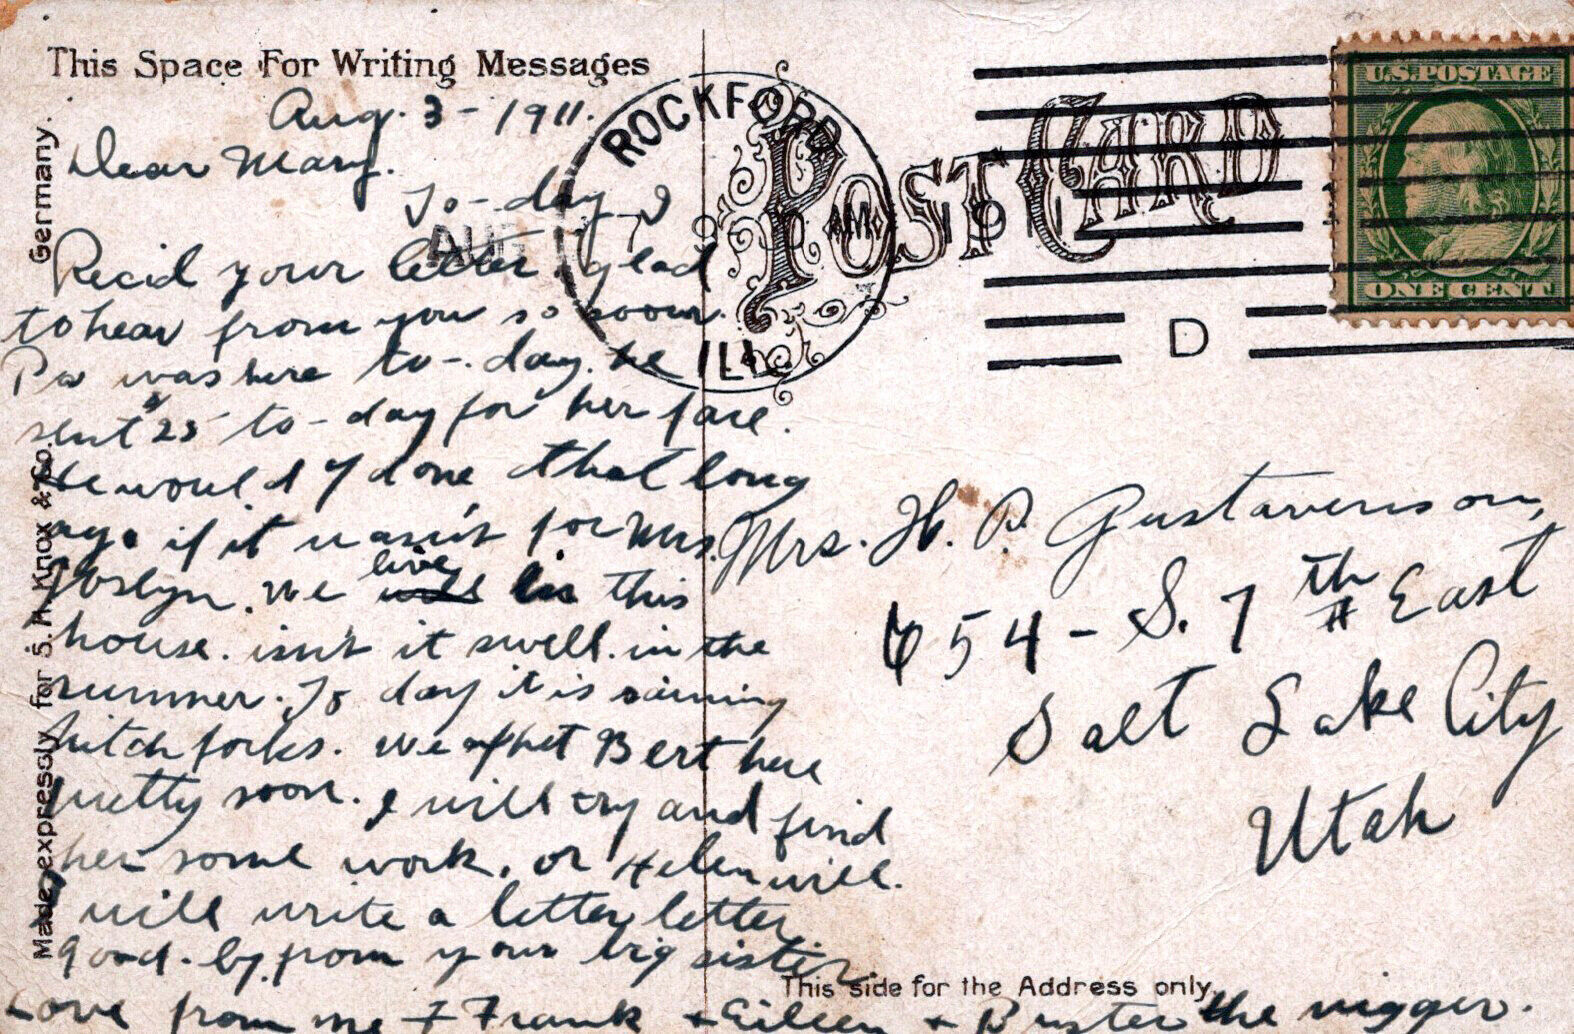 This Space For Writing Messages
Aug. 3 - 1911.
Dear Mary.
To-day I
Recid your letter, glad
to hear from you so soon.
Pa was here to-day. he
sent $25 to-day for her fare.
He would of done that long
ago if it wasn't for Mrs.
Joslyn. We live in this
house. isn't it swell. in the
summer. To day it is raining
pitch forks. We expect Bert here
pretty soon. I will try and find
her some work, or Helen will.
I will write a letter letter
good-by from your big sister.
Love from me + Frank + Eileen + Buster the nigger.
Made expressly for S. H. Knox & Co. Germany.
POST CARD
ROCKFORD
AUG
7
AM
1911
ILL.
D
U.S. POSTAGE
ONE CENT
Mrs. H. P. Gustaverson,
654 - S. 7th East
Salt Lake City
Utah
This side for the Address only.